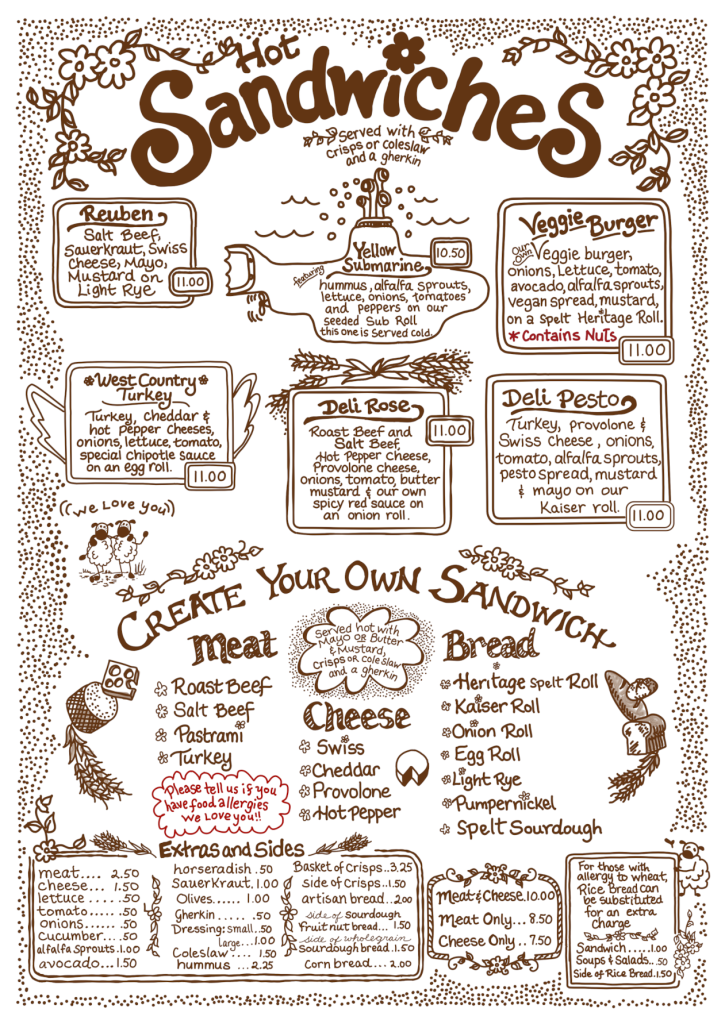 Hot
Sandwiches
Served with
Crisps or coleslaw
and a gherkin
Reuben
Salt Beef,
Sauerkraut, Swiss
Cheese, Mayo,
Mustard on
Light Rye
11.00
Yellow
Submarine
10.50
featuring
hummus, alfalfa sprouts,
lettuce, onions, tomatoes
and peppers on our
seeded Sub Roll
this one is served cold.
Veggie Burger
Our Own Veggie burger,
onions, Lettuce, tomato,
avocado, alfalfa sprouts,
vegan spread, mustard,
on a spelt Heritage Roll.
*Contains Nuts
11.00
West Country
Turkey
Turkey, cheddar &
hot pepper cheeses,
onions, lettuce, tomato,
special chipotle sauce
on an egg roll.
11.00
Deli Rose
11.00
Roast Beef and
Salt Beef,
Hot Pepper Cheese,
Provolone cheese,
onions, tomato, butter
mustard & our own
spicy red sauce on
an onion roll.
Deli Pesto
Turkey, provolone &
Swiss Cheese, onions,
tomato, alfalfa sprouts,
pesto spread, mustard
& mayo on our
Kaiser roll.
11.00
((We Love you))
Create Your Own Sandwich
Meat
Roast Beef
Salt Beef
Pastrami
Turkey
Please tell us if you
have food allergies
We Love you!!
Served hot with
Mayo OR Butter
& Mustard,
Crisps OR coleslaw
and a gherkin
Cheese
Swiss
Cheddar
Provolone
Hot Pepper
Bread
Heritage Spelt Roll
Kaiser Roll
Onion Roll
Egg Roll
Light Rye
Pumpernickel
Spelt Sourdough
Extras and Sides
meat.... 2.50
cheese.... 1.50
lettuce.....50
tomato.....50
onions.....50
cucumber....50
alfalfa sprouts.1.00
avocado...1.50
horseradish .50
Sauerkraut.1.00
Olives...... 1.00
Gherkin ..... .50
Dressing: small..50
large...1.00
Coleslaw.... 1.50
hummus ...2.25
Basket of Crisps..3.25
side of crisps..1.50
artisan bread...2.00
side of sourdough
Fruit nut bread....1.50
side of wholegrain
Sourdough bread.1.50
Corn bread.... 2.00
Meat & Cheese.10.00
Meat Only... 8.50
Cheese Only..7.50
For those with
allergy to wheat,
Rice Bread can
be substituted
for an extra
charge
Sandwich.....1.00
Soups & Salads...50
Side of Rice Bread.1.50